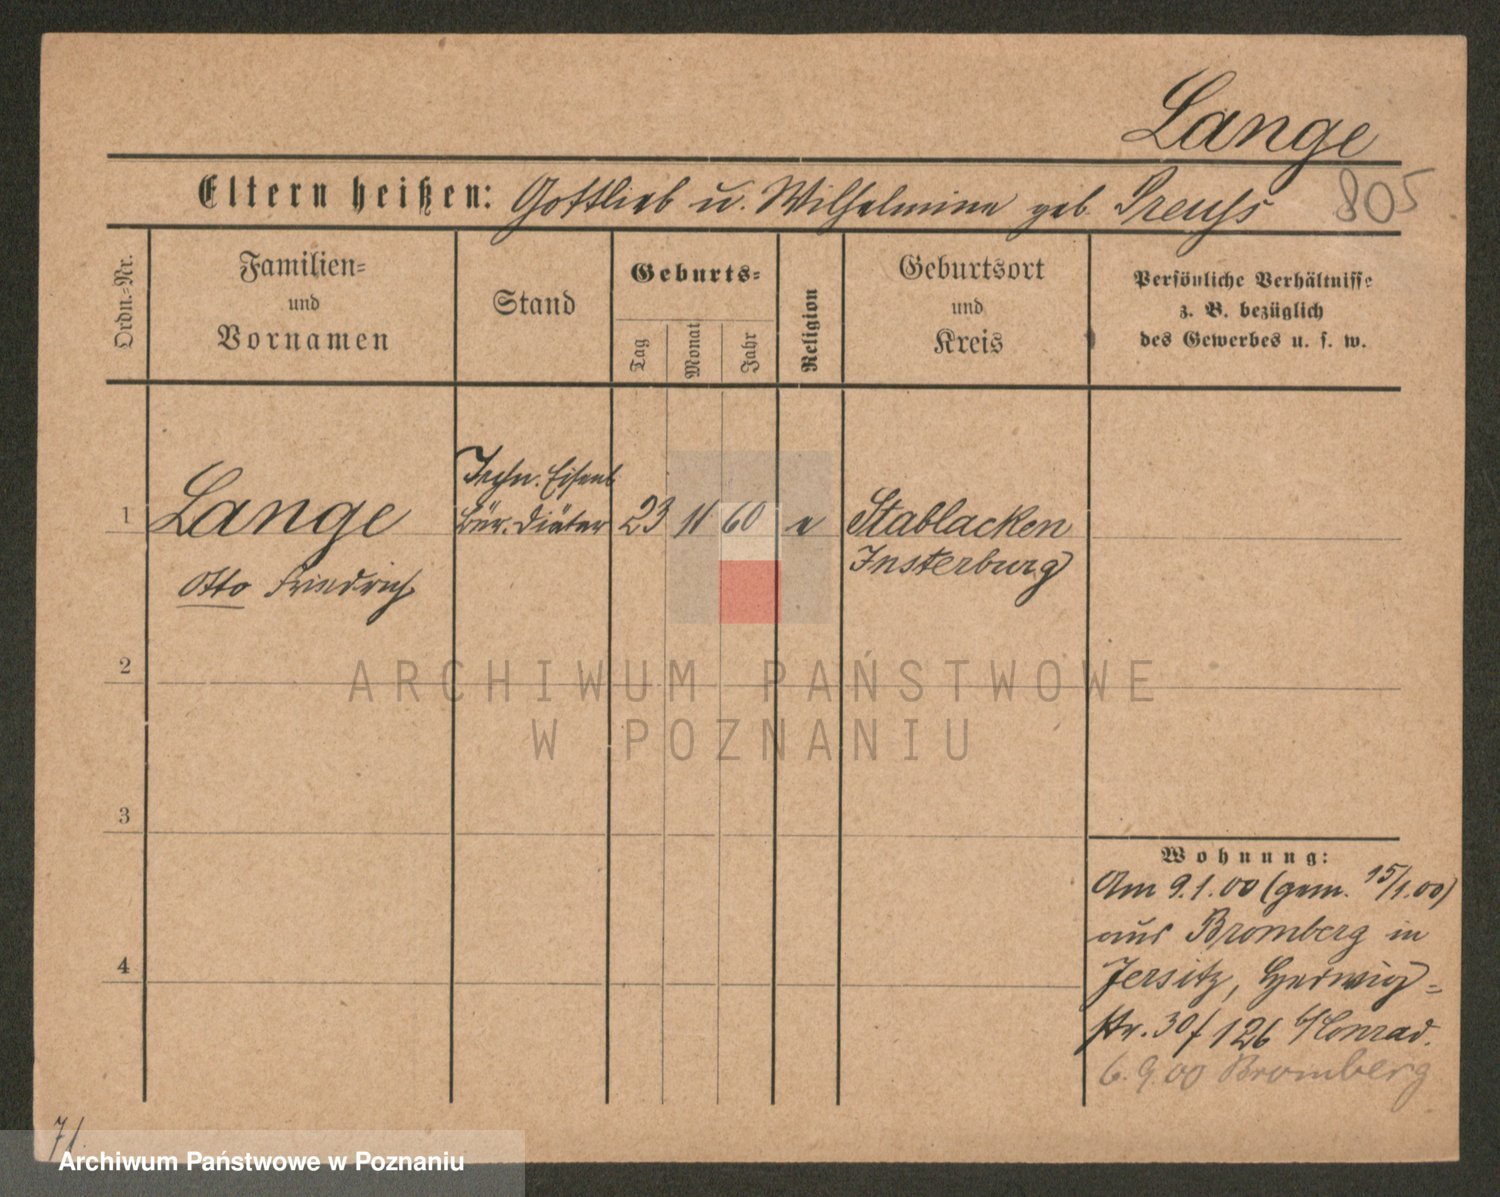 Lange
Eltern heißen: Gottlieb u. Wilhelmine geb. Preuss
805
Ordn.-Nr.
Familien-
und
Vornamen
Stand
Geburts-
Tag
Monat
Jahr
Religion
Geburtsort
und
Kreis
Persönliche Verhältnisse
z. B. bezüglich
des Gewerbes u. s. w.
Techn. Eisenb.
1 Lange Bür. Diätar 23 11 60 e Stablacken
Insterburg
Otto Friedrich
2
ARCHIWUM PAŃSTWOWE
W POZNANIU
3
Wohnung:
Am 9.1.00 (gem. 15/1.00)
aus Bromberg in
4
Jersitz, Hedwig-
str. 30 f 126 b/Conrad.
6.9.00 Bromberg
71.
Archiwum Państwowe w Poznaniu